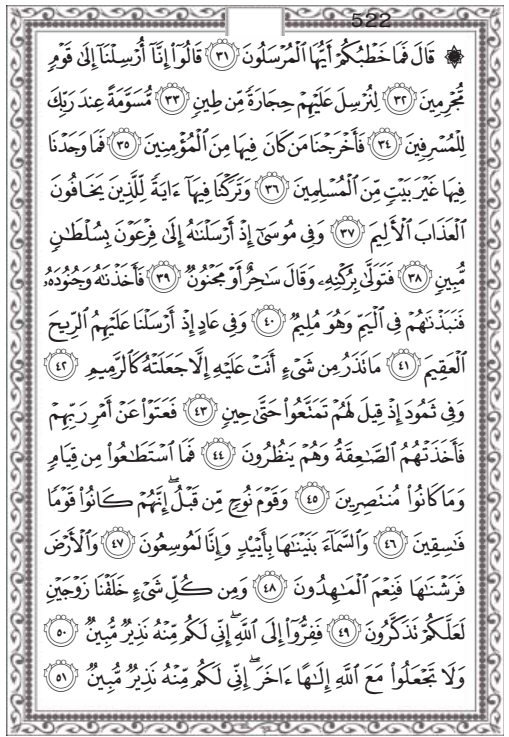 522
۞ قَالَ فَمَا خَطْبُكُمْ أَيُّهَا ٱلْمُرْسَلُونَ ٣١ قَالُوٓا۟ إِنَّآ أُرْسِلْنَآ إِلَىٰ قَوْمٍ
مُّجْرِمِينَ ٣٢ لِنُرْسِلَ عَلَيْهِمْ حِجَارَةً مِّن طِينٍ ٣٣ مُّسَوَّمَةً عِندَ رَبِّكَ
لِلْمُسْرِفِينَ ٣٤ فَأَخْرَجْنَا مَن كَانَ فِيهَا مِنَ ٱلْمُؤْمِنِينَ ٣٥ فَمَا وَجَدْنَا
فِيهَا غَيْرَ بَيْتٍ مِّنَ ٱلْمُسْلِمِينَ ٣٦ وَتَرَكْنَا فِيهَآ ءَايَةً لِّلَّذِينَ يَخَافُونَ
ٱلْعَذَابَ ٱلْأَلِيمَ ٣٧ وَفِى مُوسَىٰٓ إِذْ أَرْسَلْنَٰهُ إِلَىٰ فِرْعَوْنَ بِسُلْطَٰنٍ
مُّبِينٍ ٣٨ فَتَوَلَّىٰ بِرُكْنِهِۦ وَقَالَ سَٰحِرٌ أَوْ مَجْنُونٌ ٣٩ فَأَخَذْنَٰهُ وَجُنُودَهُۥ
فَنَبَذْنَٰهُمْ فِى ٱلْيَمِّ وَهُوَ مُلِيمٌ ٤٠ وَفِى عَادٍ إِذْ أَرْسَلْنَا عَلَيْهِمُ ٱلرِّيحَ
ٱلْعَقِيمَ ٤١ مَا تَذَرُ مِن شَىْءٍ أَتَتْ عَلَيْهِ إِلَّا جَعَلَتْهُ كَٱلرَّمِيمِ ٤٢
وَفِى ثَمُودَ إِذْ قِيلَ لَهُمْ تَمَتَّعُوا۟ حَتَّىٰ حِينٍ ٤٣ فَعَتَوْا۟ عَنْ أَمْرِ رَبِّهِمْ
فَأَخَذَتْهُمُ ٱلصَّٰعِقَةُ وَهُمْ يَنظُرُونَ ٤٤ فَمَا ٱسْتَطَٰعُوا۟ مِن قِيَامٍ
وَمَا كَانُوا۟ مُنتَصِرِينَ ٤٥ وَقَوْمَ نُوحٍ مِّن قَبْلُ ۖ إِنَّهُمْ كَانُوا۟ قَوْمًا
فَٰسِقِينَ ٤٦ وَٱلسَّمَآءَ بَنَيْنَٰهَا بِأَيْي۟دٍ وَإِنَّا لَمُوسِعُونَ ٤٧ وَٱلْأَرْضَ
فَرَشْنَٰهَا فَنِعْمَ ٱلْمَٰهِدُونَ ٤٨ وَمِن كُلِّ شَىْءٍ خَلَقْنَا زَوْجَيْنِ
لَعَلَّكُمْ تَذَكَّرُونَ ٤٩ فَفِرُّوٓا۟ إِلَى ٱللَّهِ ۖ إِنِّى لَكُم مِّنْهُ نَذِيرٌ مُّبِينٌ ٥٠
وَلَا تَجْعَلُوا۟ مَعَ ٱللَّهِ إِلَٰهًا ءَاخَرَ ۖ إِنِّى لَكُم مِّنْهُ نَذِيرٌ مُّبِينٌ ٥١